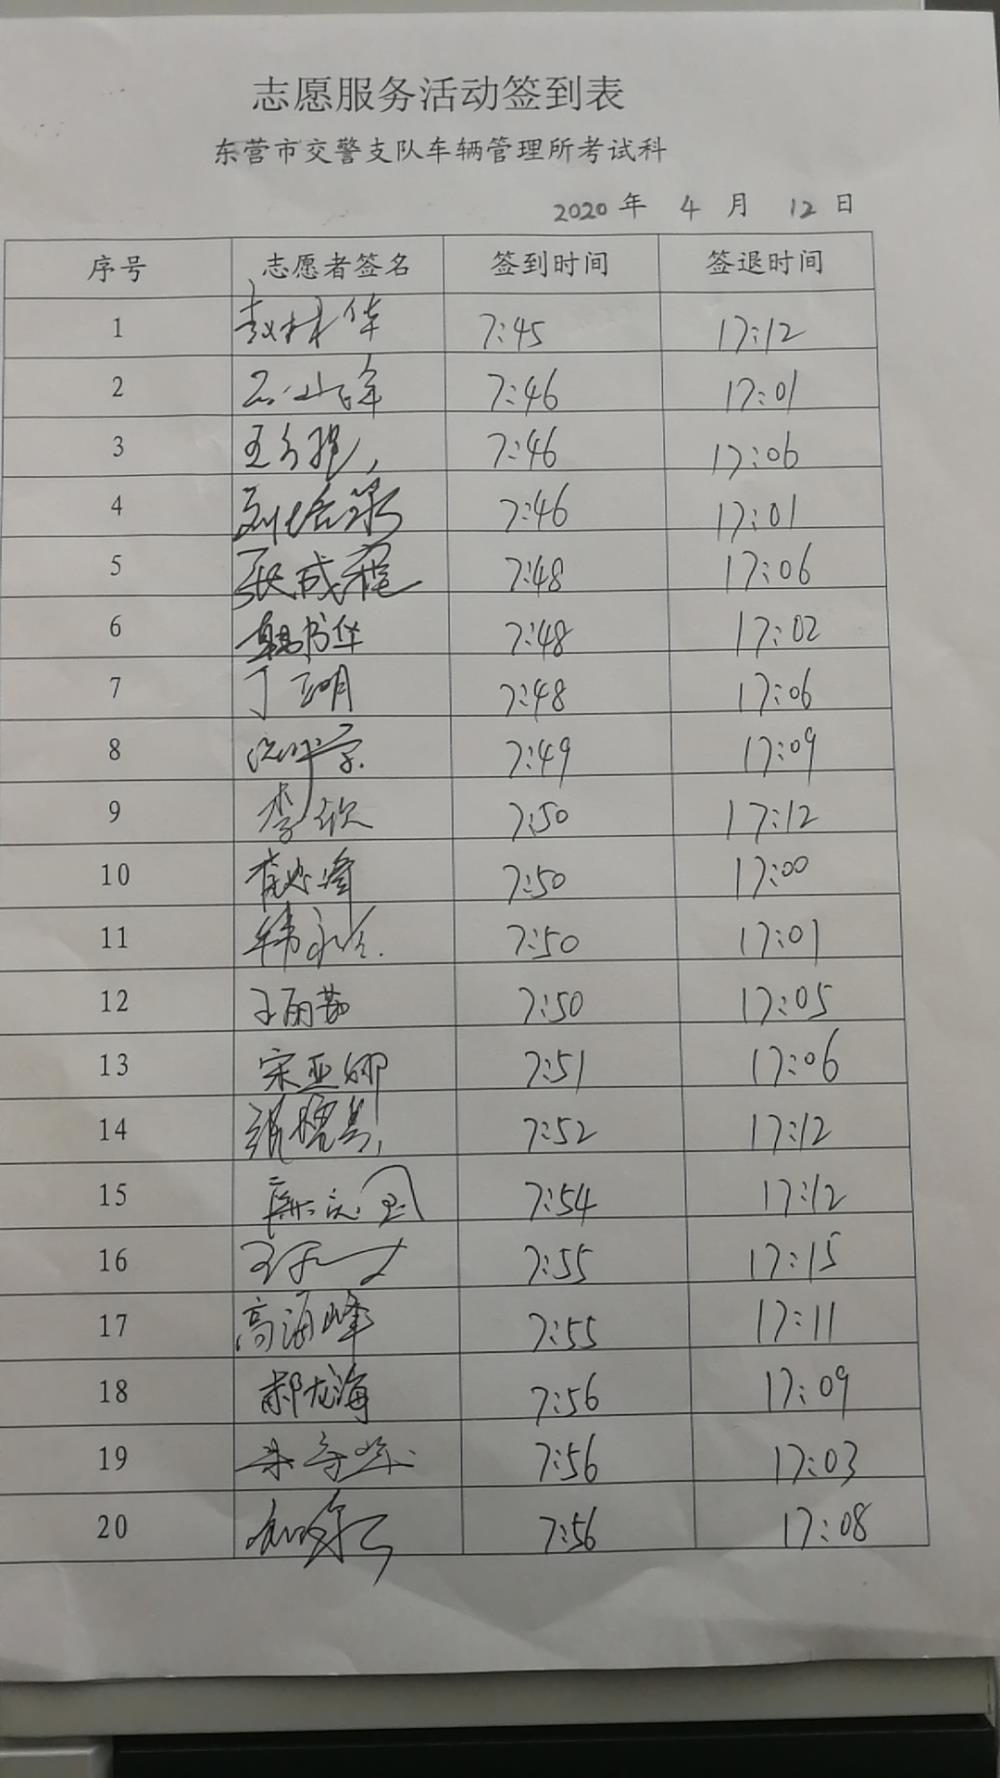 志愿服务活动签到表
东营市交警支队车辆管理所考试科
2020 年 4 月 12 日
序号 志愿者签名 签到时间 签退时间
1 赵林华 7:45 17:12
2 7:46 17:01
3 7:46 17:06
4 7:46 17:01
5 张成程 7:48 17:06
6 韩书华 7:48 17:02
7 丁明 7:48 17:06
8 7:49 17:09
9 李欣 7:50 17:12
10 7:50 17:00
11 韩永 7:50 17:01
12 王丽茹 7:50 17:05
13 宋亚娜 7:51 17:06
14 张晓 7:52 17:12
15 7:54 17:12
16 7:55 17:15
17 高海峰 7:55 17:11
18 郝龙海 7:56 17:09
19 7:56 17:03
20 7:56 17:08